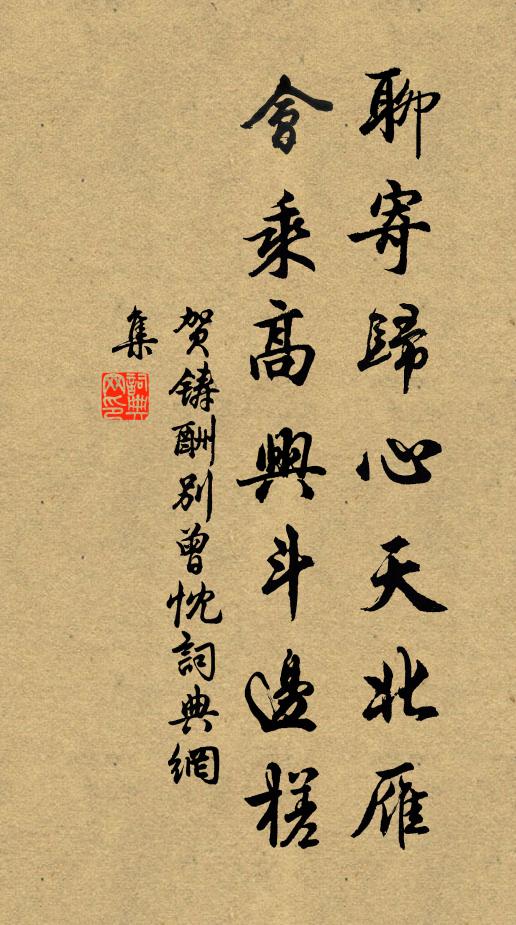 聊寄歸心天北雁
會乘高興斗邊槎
賀鑄酬別曾忱詞典網
集
詞典網印